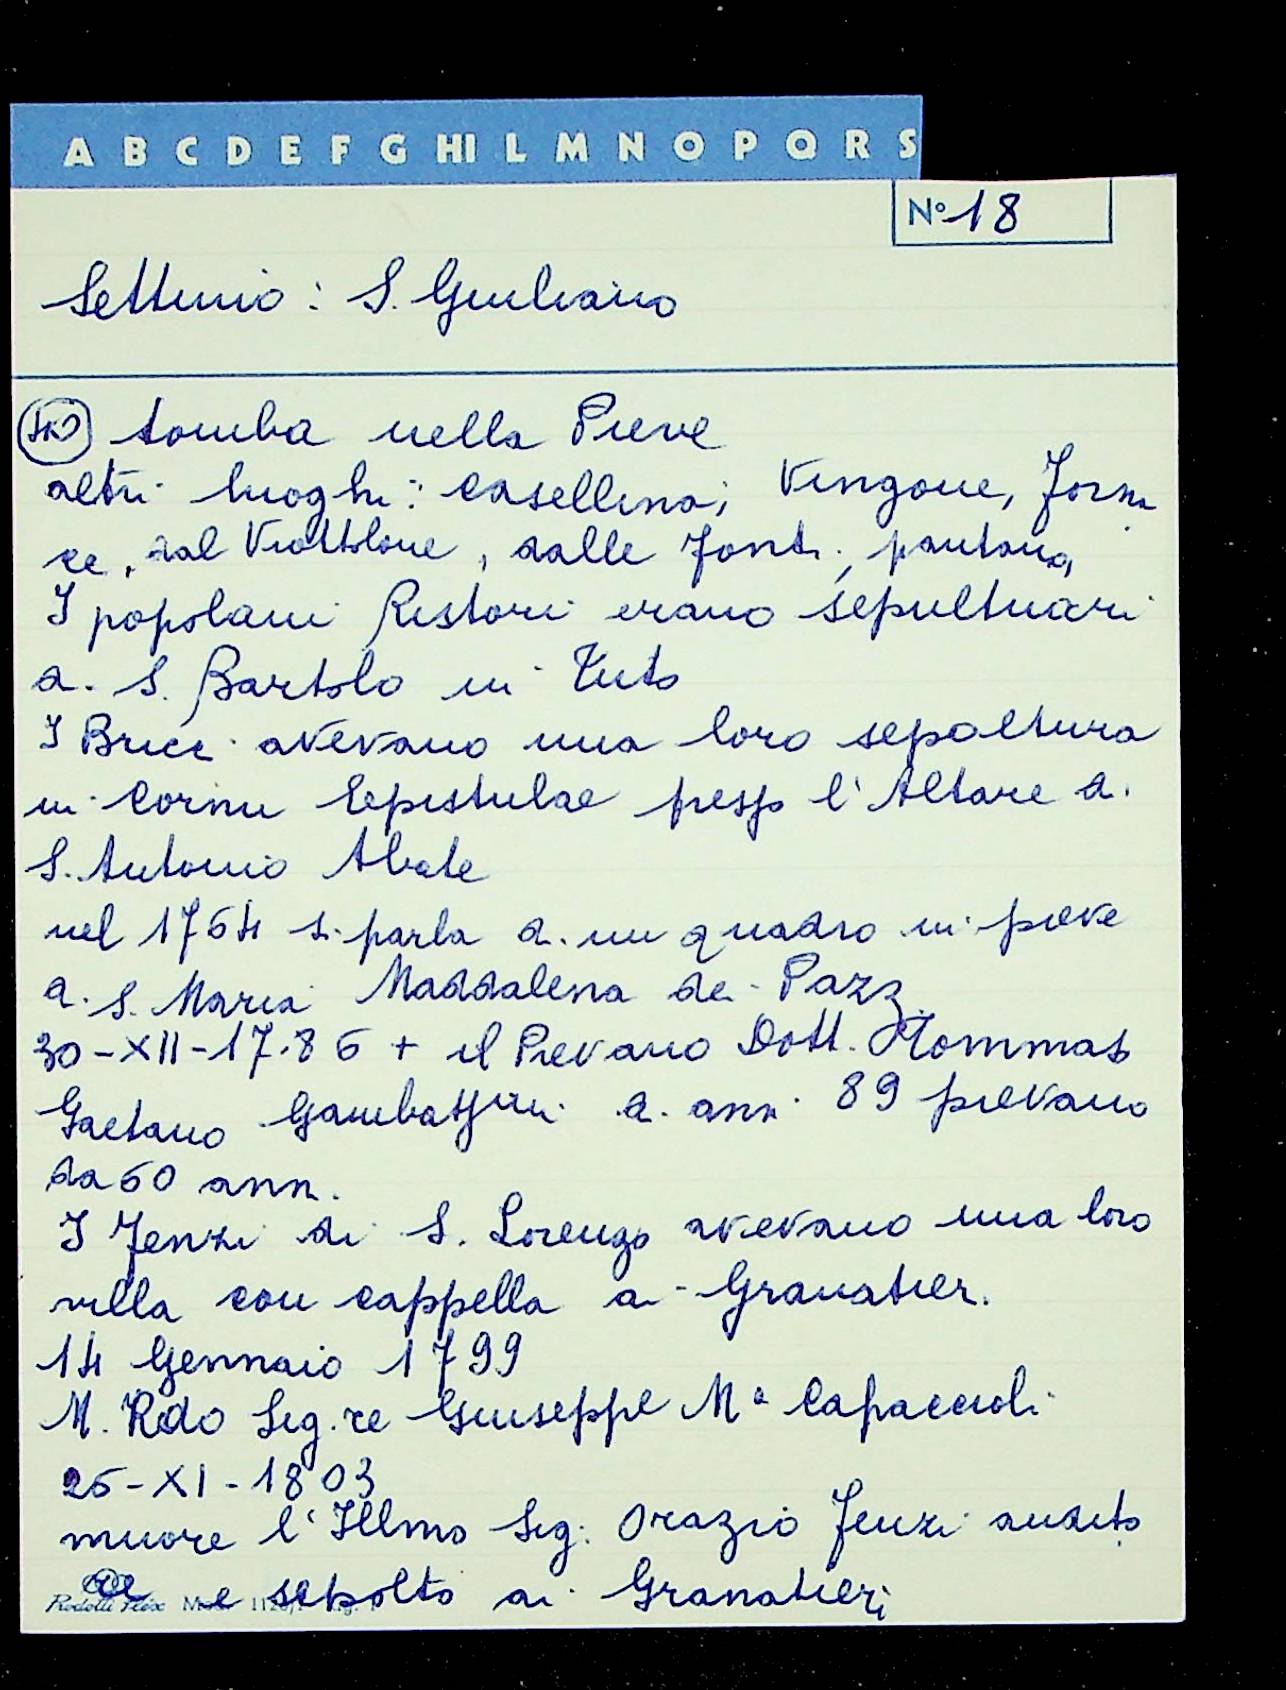 A B C D E F G HI L M N O P Q R S
N° 18
Settimo: S. Giuliano
tomba nella Pieve
altri luoghi: Casellina; Vingone, Forna
ce, dal Viottolone, dalle Fonti, pantano,
I popolani Ristori erano sepultuari
a. S. Bartolo in Tuto
I Bricci avevano una loro sepoltura
in Cornu Epistulae presso l'Altare di
S. Antonio Abate
nel 1764 si parla di un quadro in pieve
di S. Maria Maddalena de Pazzi
30-XII-1786 + il Pievano Dott. Tommaso
Gaetano di anni 89 pievano
da 60 anni.
I Fenzi di S. Lorenzo avevano una loro
villa con cappella ai Granatieri.
14 Gennaio 1799
M. Rdo Sig.re Giuseppe Mª Capaccioli
25-XI-1803
muore l'Illmo Sig. Orazio Fenzi
e sepolto ai Granatieri